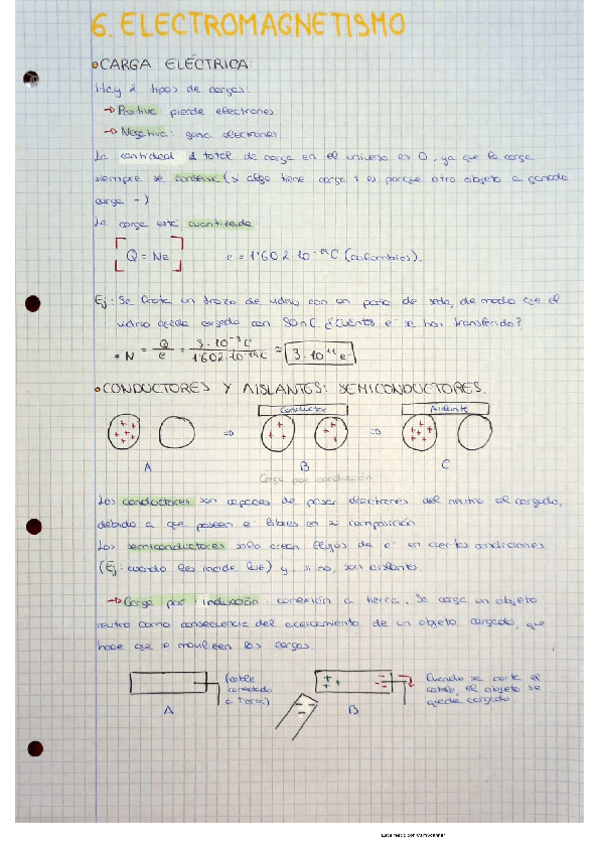 6. ELECTROMAGNETISMO
• CARGA ELÉCTRICA:
Hay 2 tipos de cargas:
→ Positiva: pierde electrones
→ Negativa: gana electrones
La cantidad total de carga en el universo es 0, ya que la carga
siempre se conserva (si algo tiene carga + es porque otro objeto a ganado
carga -)
La carga está cuantizada:
Q = Ne e = 1'602·10⁻¹⁹C (culombios).
Ej: Se frota un trozo de vidrio con un paño de seda, de modo que el
vidrio queda cargado con 50nC ¿Cuántos e⁻ se han transferido?
• N = Q/e = 5·10⁻⁹C / 1'602·10⁻¹⁹C ≈ 3·10¹¹ e⁻
• CONDUCTORES Y AISLANTES: SEMICONDUCTORES.
Conductor Aislante
⇒ ⇒
A B C
Carga por conducción
Los conductores son capaces de pasar electrones del neutro al cargado,
debido a que poseen e⁻ libres en su composición
Los semiconductores solo crean flujos de e⁻ en ciertas condiciones
(Ej: cuando les incide luz) y, si no, son aislantes.
→ Carga por inducción: conexión a tierra. Se carga un objeto
neutro como consecuencia del acercamiento de un objeto cargado, que
hace que se movilicen las cargas.
(cable conectado a tierra)
A B
Cuando se corte el
cable, el objeto se
queda cargado.